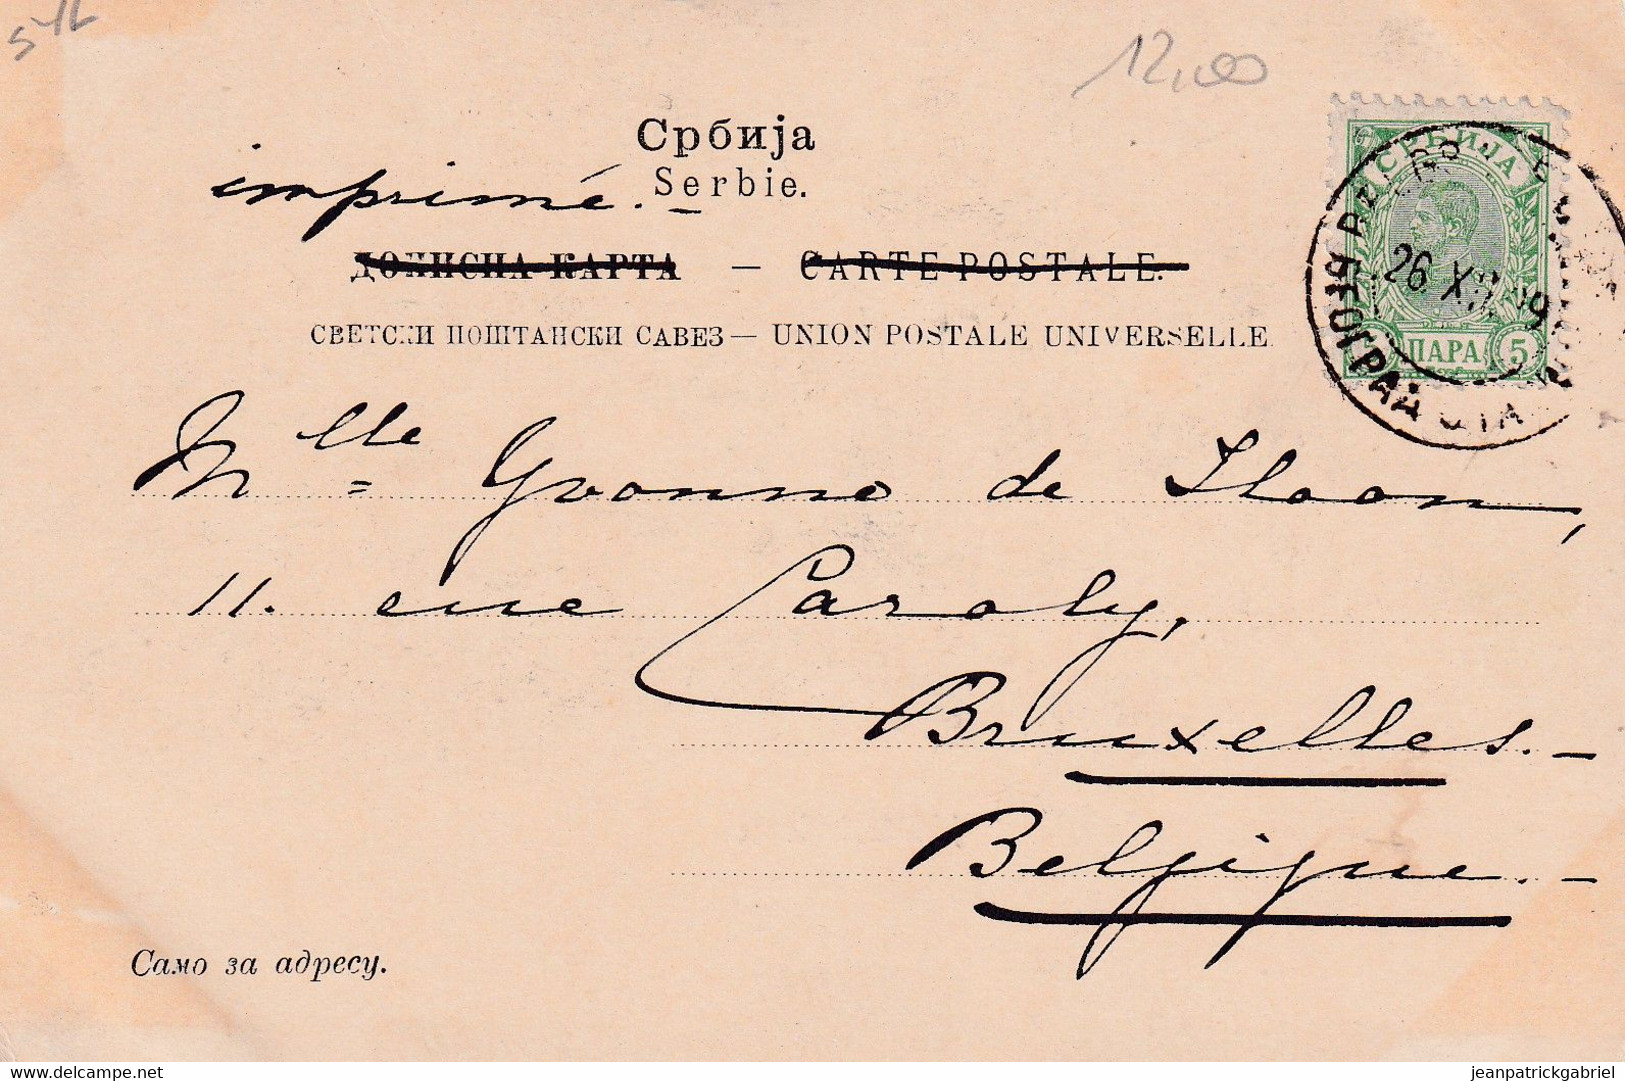 12,00
Србија
imprimé.
Serbie.
ДОПИСНА КАРТА — CARTE POSTALE.
СВЕТСКИ ПОШТАНСКИ САВЕЗ — UNION POSTALE UNIVERSELLE
СРБИЈА
26 XII
ПАРА 5
Mlle Yvonne de
11. rue Caroly,
Bruxelles. —
Belgique. —
Само за адресу.
delcampe.net
jeanpatrickgabriel